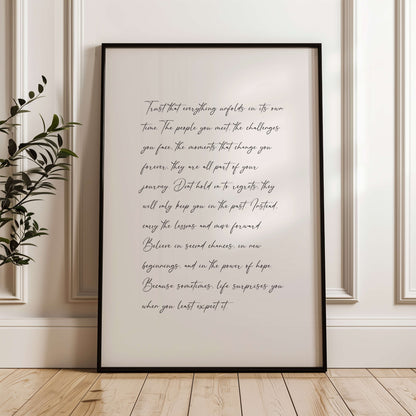 Trust that everything unfolds in its own
time. The people you meet, the challenges
you face, the moments that change you
forever, they are all part of your
journey. Dont hold on to regrets, they
will only keep you in the past. Instead,
carry the lessons and move forward.
Believe in second chances, in new
beginnings, and in the power of hope.
Because sometimes, life surprises you
when you least expect it.